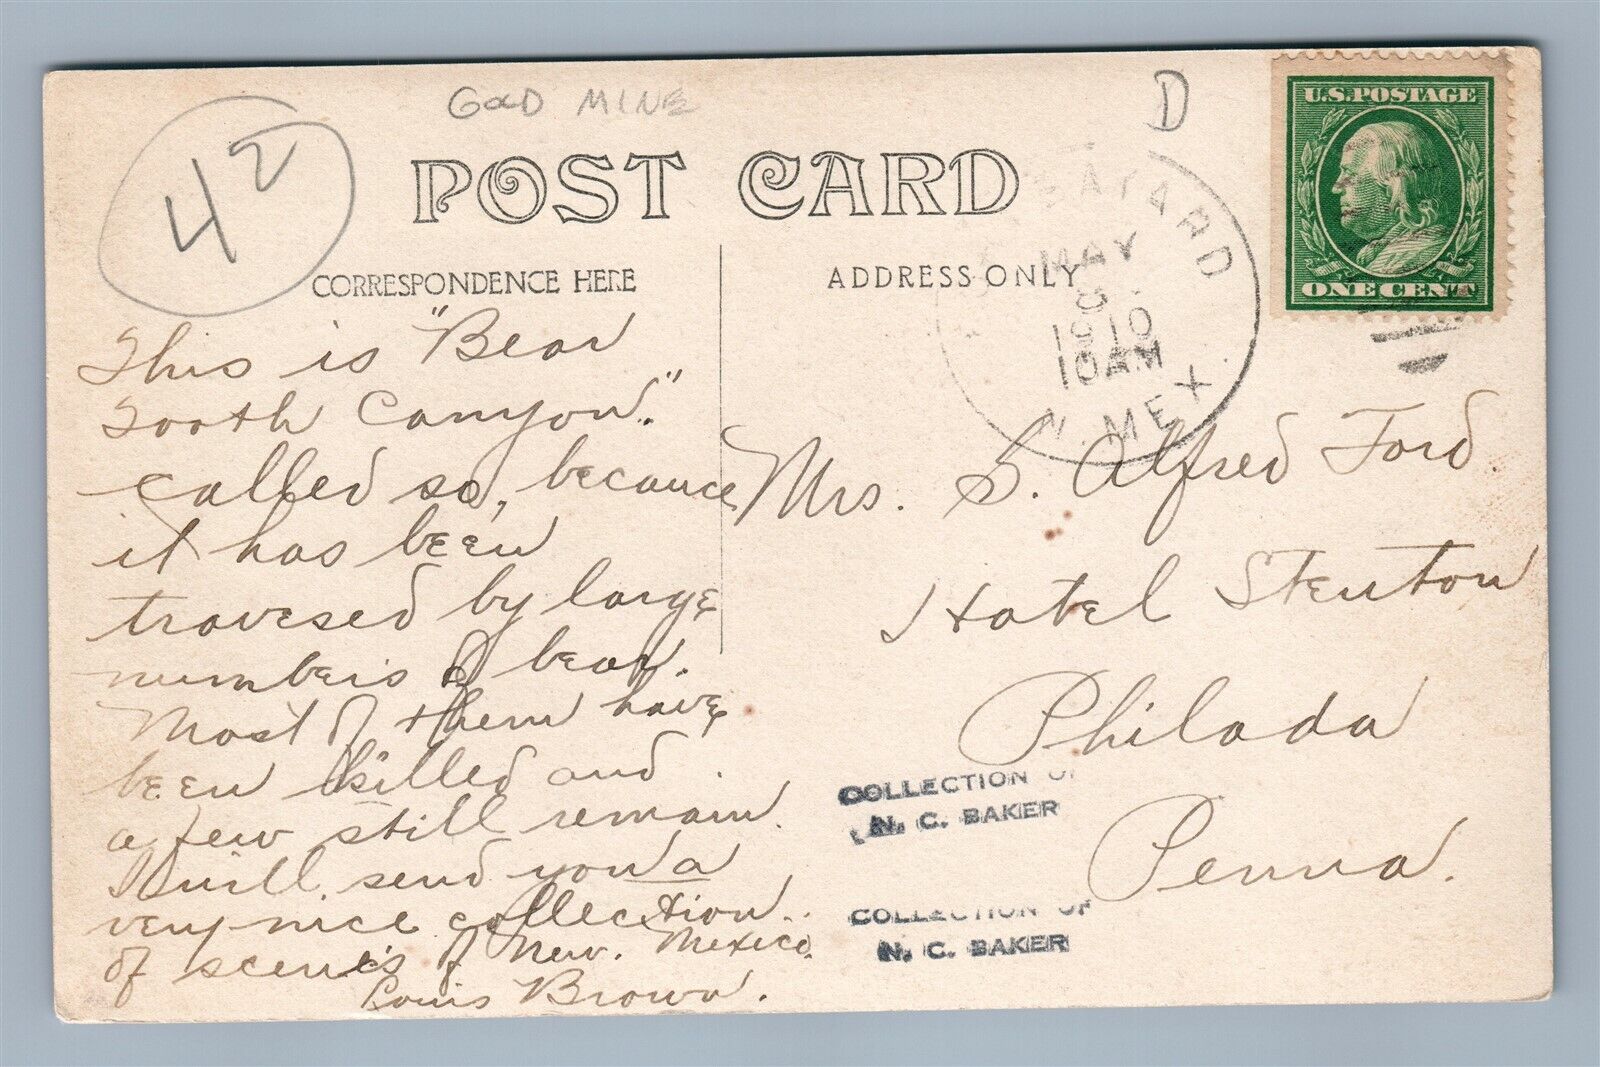 42
GOLD MINE
D
POST CARD
U.S. POSTAGE
ONE CENT
CORRESPONDENCE HERE
ADDRESS ONLY
BAYARD
MAY
10
10AM
N. MEX.
This is "Bear
Tooth Canyon"
called so, because
it has been
travesed by large
numbers of bear.
Most of them have
been killed and
a few still remain.
I will send you a
very nice collection
of scenes of New. Mexico.
Louis Brown.
Mrs. S. Alfred Ford
Hotel Stenton
Philada
Penna.
COLLECTION OF
N. C. BAKER
COLLECTION OF
N. C. BAKER